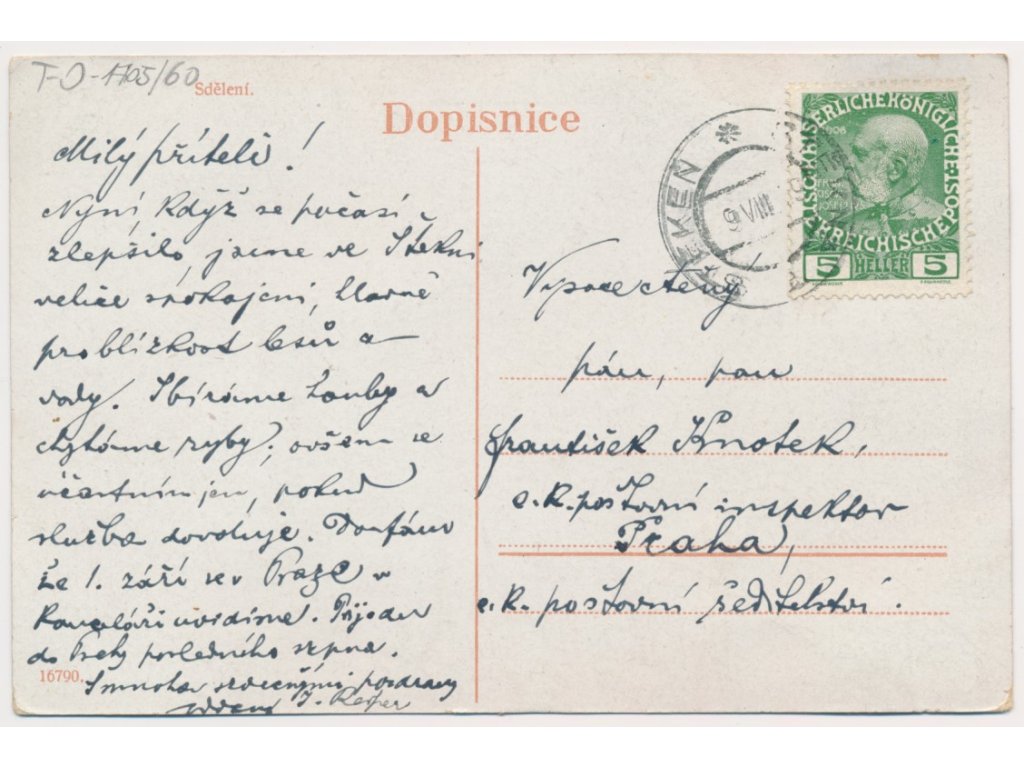 T-O-1105/60
Sdělení.
Dopisnice
Milý příteli!
Nyní když se počasí
zlepšilo, jsme ve Štekni
velice spokojeni, hlavně
pro blízkost lesů a
vody. Sbíráme houby a
chytáme ryby; ovšem se
účastním jen, pokud
služba dovoluje. Doufám
že 1. září se v Praze v
kanceláři uvidíme. Přijedu
do Prahy posledního srpna.
S mnoha srdečnými pozdravy
J.
16790.
ŠTĚKEŇ
9 VIII
KAISERLICHE KÖNIGLICHE ÖSTERREICHISCHE POST
1908
5 HELLER 5
Vysoce ctěný
pán, pan
František Knotek,
c. k. poštovní inspektor
Praha,
c. k. poštovní ředitelství.